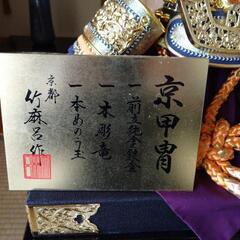 京甲冑
一前立純金鍍金
一木彫竜
一本めのう玉
京都
竹麻呂作